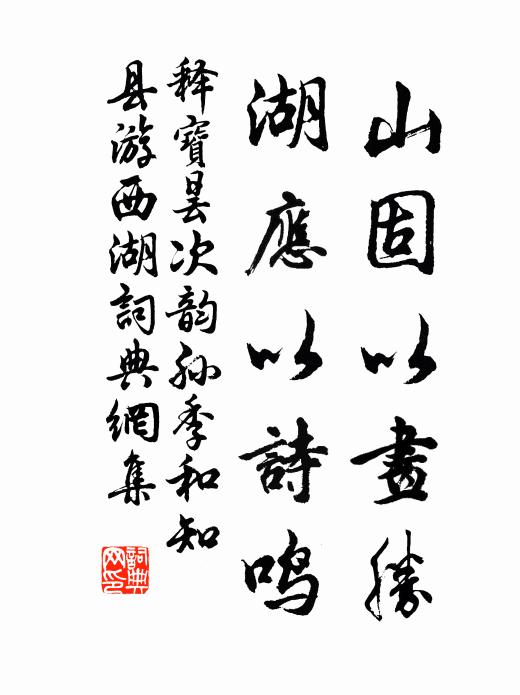 山固以畫勝
湖應以詩鳴
释寶昙次韵孙季和知
县游西湖詞典網集
詞典网印